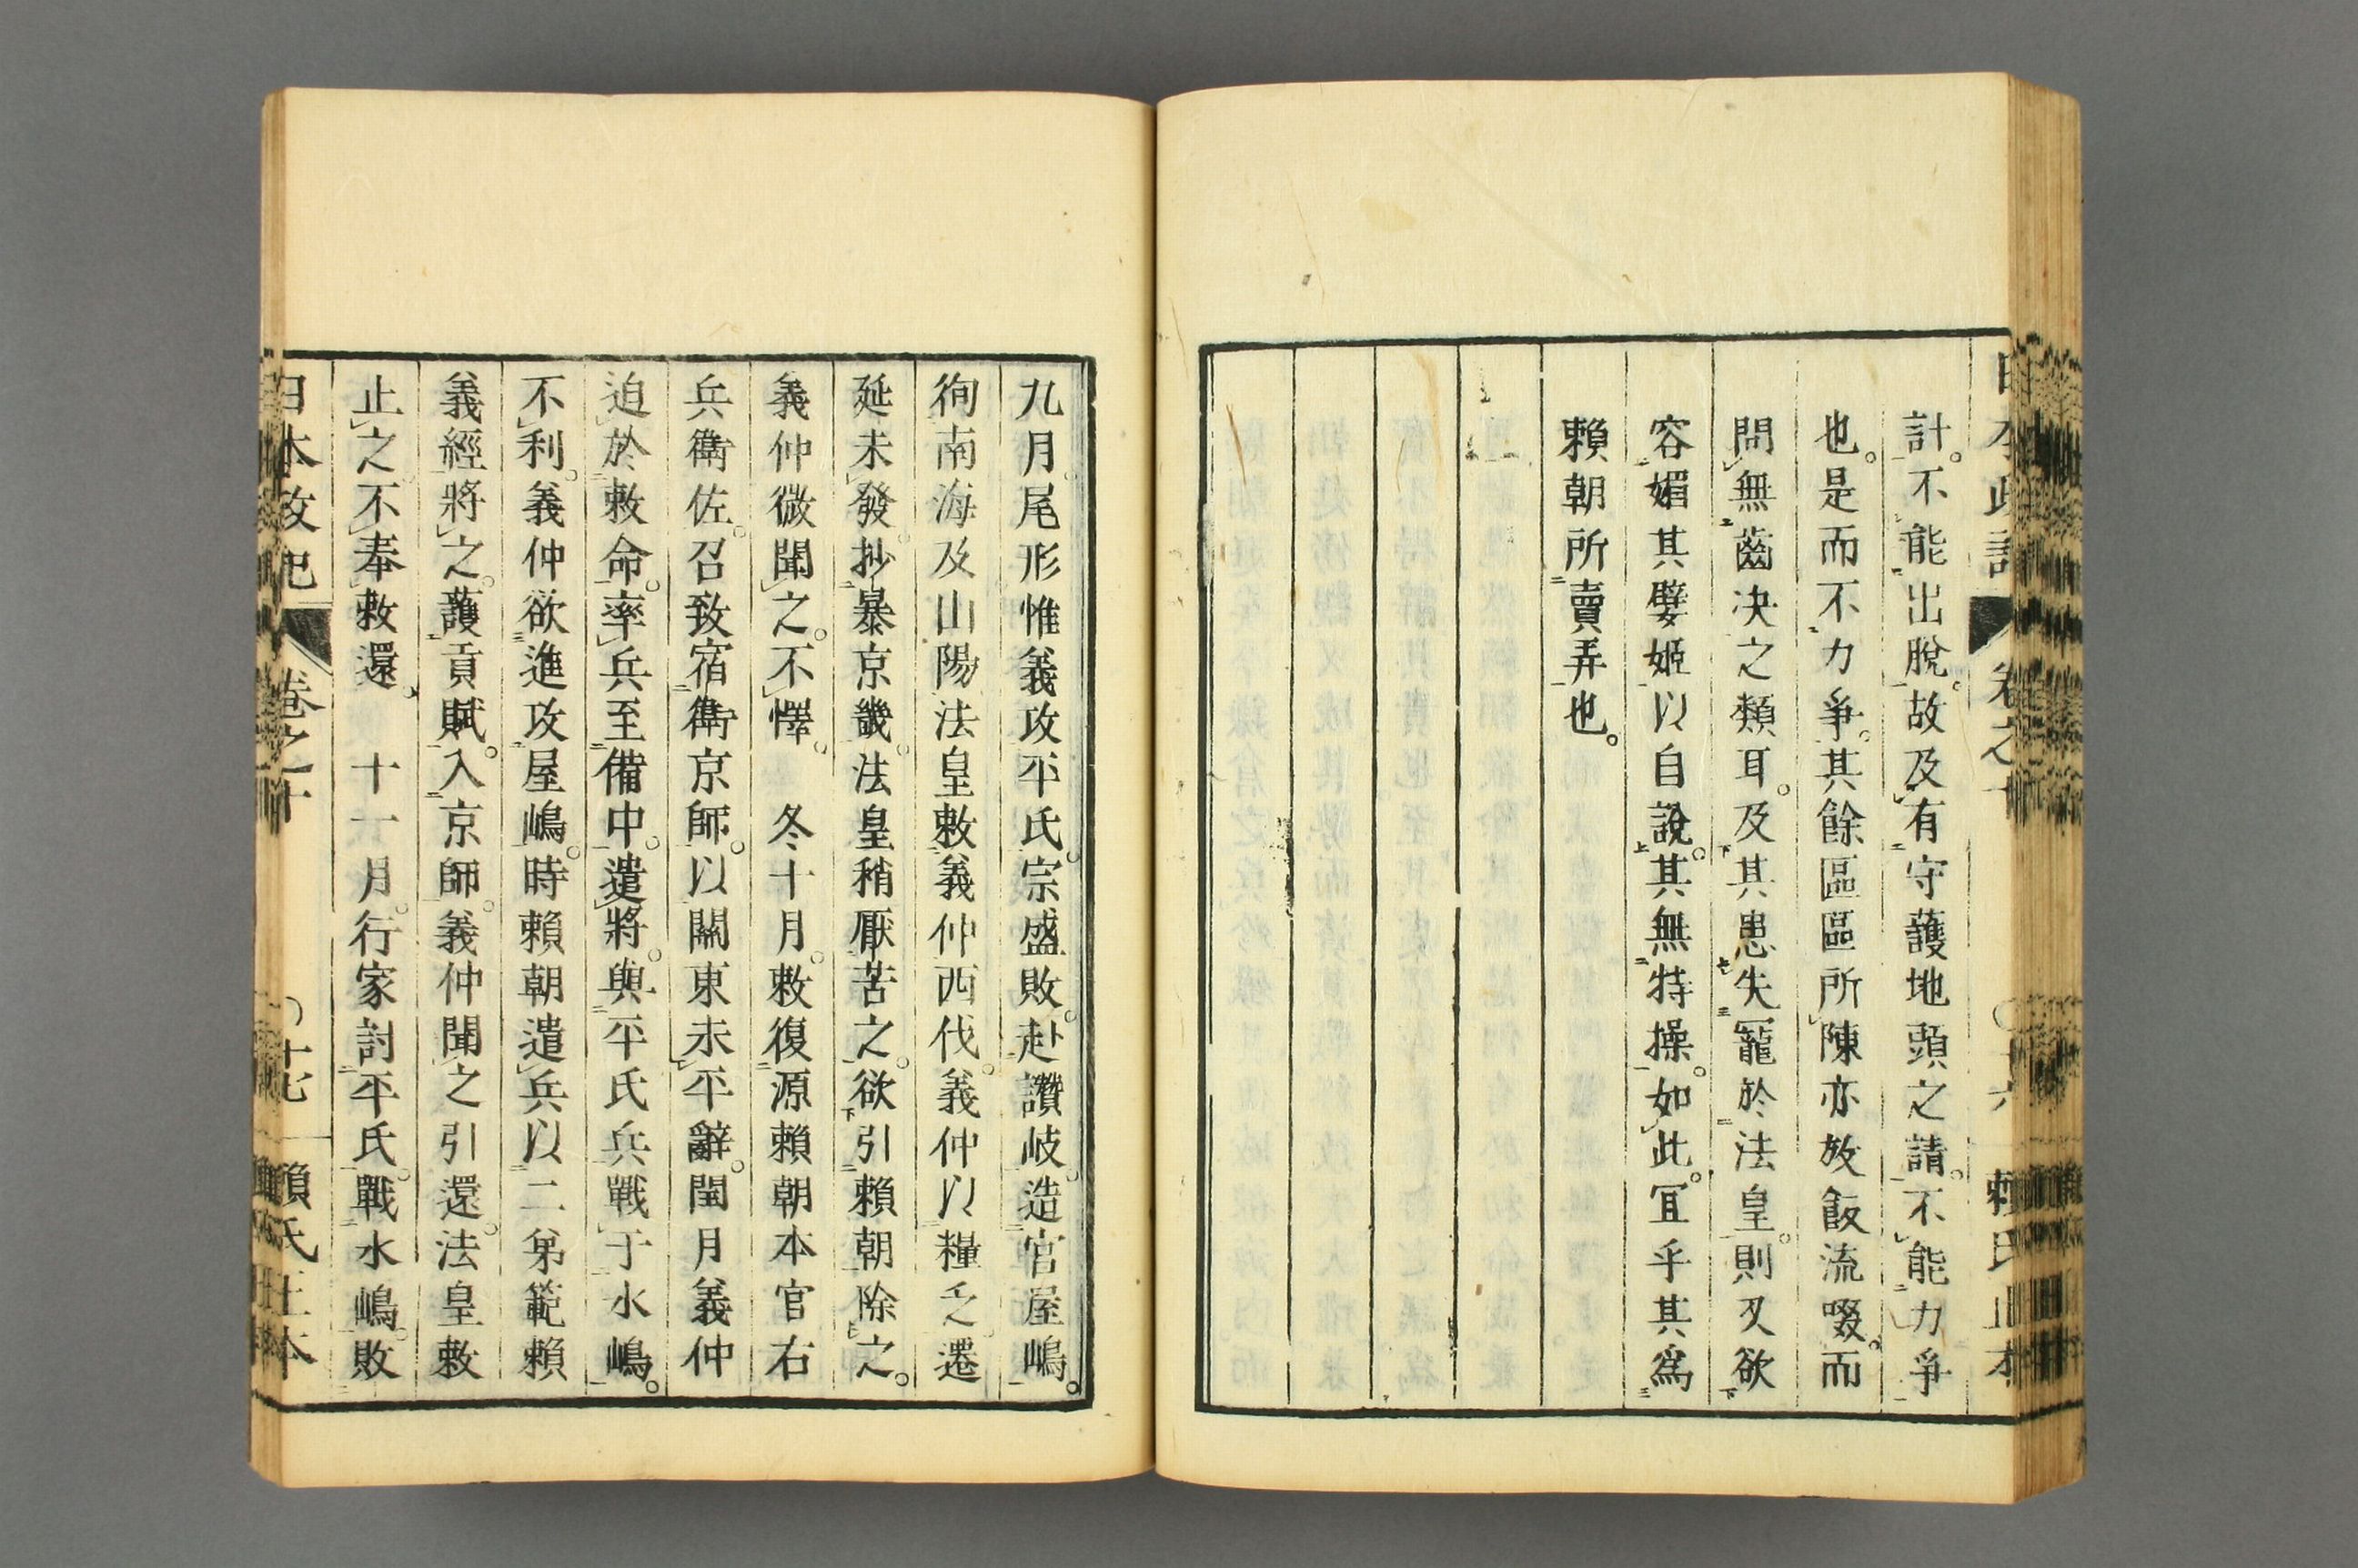 計。不能出脫。故及有守護地頭之請。不能力爭
也。是而不力爭。其餘區區所陳亦放飯流啜。而
問無齒决之類耳。及其患失寵於法皇。則又欲
容媚其嬖姬以自說。其無特操。如此。冝乎其爲
賴朝所賣弄也。
九月。尾形惟義攻平氏。宗盛敗。赴讚岐。造宮屋嶋。
徇南海及山陽。法皇敕義仲西伐。義仲以糧乏。遷
延未發。抄暴京畿。法皇稍厭苦之。欲引賴朝除之。
義仲微聞之。不懌。 冬十月。敕復源賴朝本官右
兵衞佐。召致宿衞京師。以關東未平辭。閏月義仲
迫於敕命。率兵至備中。遣將。與平氏兵戰于水嶋。
不利。義仲欲進攻屋嶋。時賴朝遣兵以二弟範賴
義經將之。護貢賦。入京師。義仲聞之引還。法皇敕
止之。不奉敕還。 十一月。行家討平氏。戰水嶋。敗
日本政記 卷之十 〇十七 賴氏正本